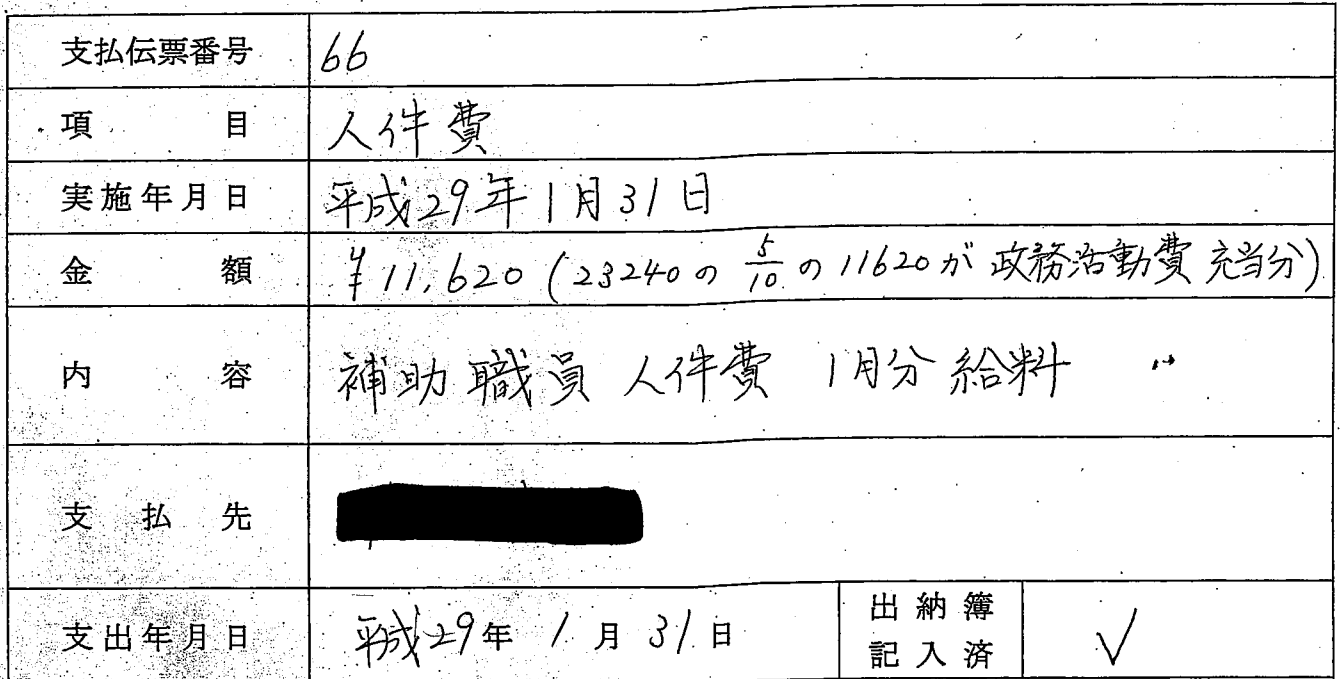 支払伝票番号 66
項目 人件費
実施年月日 平成29年1月31日
金額 ¥11,620 (23240の 5/10 の11620が 政務活動費 充当分)
内容 補助職員 人件費 1月分 給料
支払先
支出年月日 平成29年 1月 31日 出納簿記入済 √